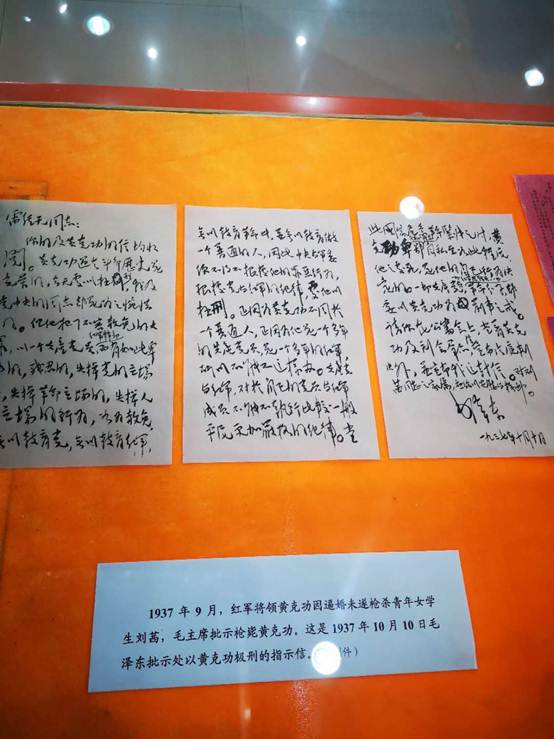 雷经天同志:
你的及黄克功的信均收
阅。黄克功过去斗争历史是
光荣的,今天处以极刑,我及
党中央的同志都是为之惋惜
的。但他犯了不容赦免的大
罪,以一个共产党员红军干部而有如此卑鄙
的,残忍的,失掉党的立场
的,失掉革命立场的,失掉人
立场的行为,如为赦免,
无以教育党,无以教育红军,
无以教育革命者,并无以教育做
一个普通的人,因此中央与军委
便不得不根据他的罪恶行为,
根据党与红军的纪律,处他以
极刑。正因为黄克功不同于
一个普通人,正因为他是一个多年
的共产党员,是一个多年的红军,
所以不能不这样办。共产党
与红军,对于自己的党员与红军
成员不能不执行比较一般
平民更加严格的纪律。当
此国家危急革命紧张之时,黄
克功卑鄙无耻残忍自私至如此程度,
他之处死,是他的自己行为决
定的。一切共产党员,
要以黄克功为前车之戒。
请你在公审会上,当着黄克
功及到会群众,除宣布法庭判决
外,并宣布我这封信。对刘
茜同志之家属,应给以安慰与体恤。
毛泽东
一九三七年十月十日
1937 年 9 月,红军将领黄克功因逼婚未遂枪杀青年女学
生刘茜,毛主席批示枪毙黄克功。这是 1937 年 10 月 10 日毛
泽东批示处以黄克功极刑的指示信。件)